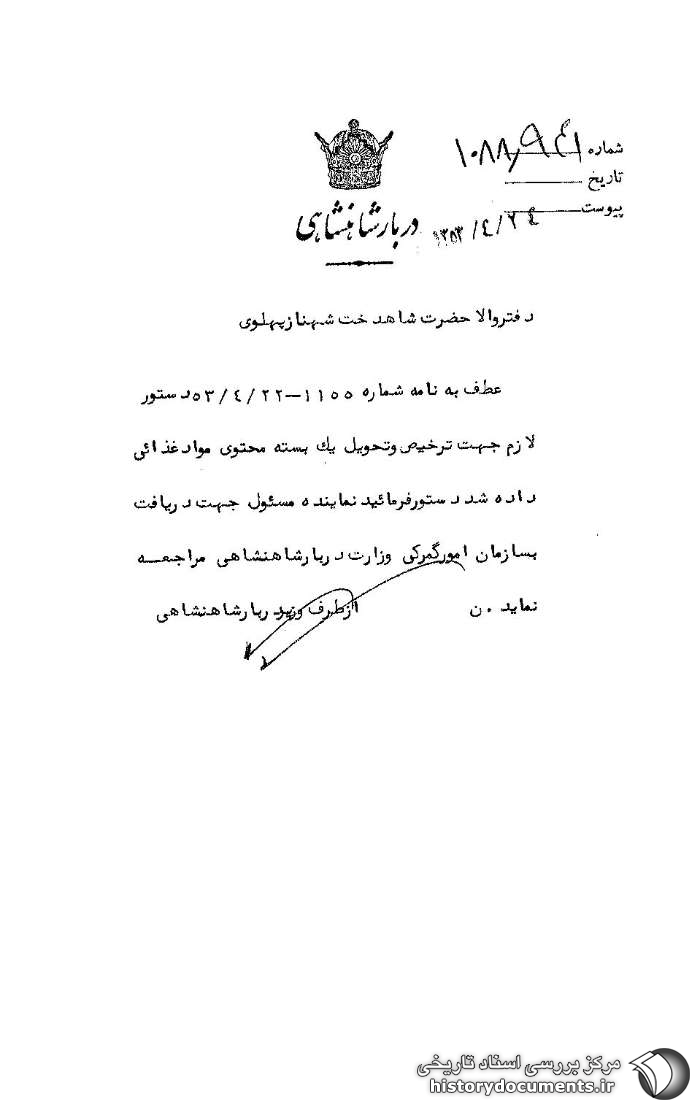 شماره ۱۰۸۸٫۹۴۱
تاریخ
پیوست
۱۳۵۳/٤/۲٤
دربار شاهنشاهی
دفتر والا حضرت شاهدخت شهناز پهلوی
عطف به نامه شماره ۱۱۵۵–۵۳/٤/۲۲ دستور
لازم جهت ترخیص و تحویل یك بسته محتوی مواد غذائی
داده شد دستور فرمائید نماینده مسئول جهت دریافت
بسازمان امور گمرکی وزارت دربار شاهنشاهی مراجعه
نماید .ن
از طرف وزیر دربار شاهنشاهی
مرکز بررسی اسناد تاریخی
historydocuments.ir